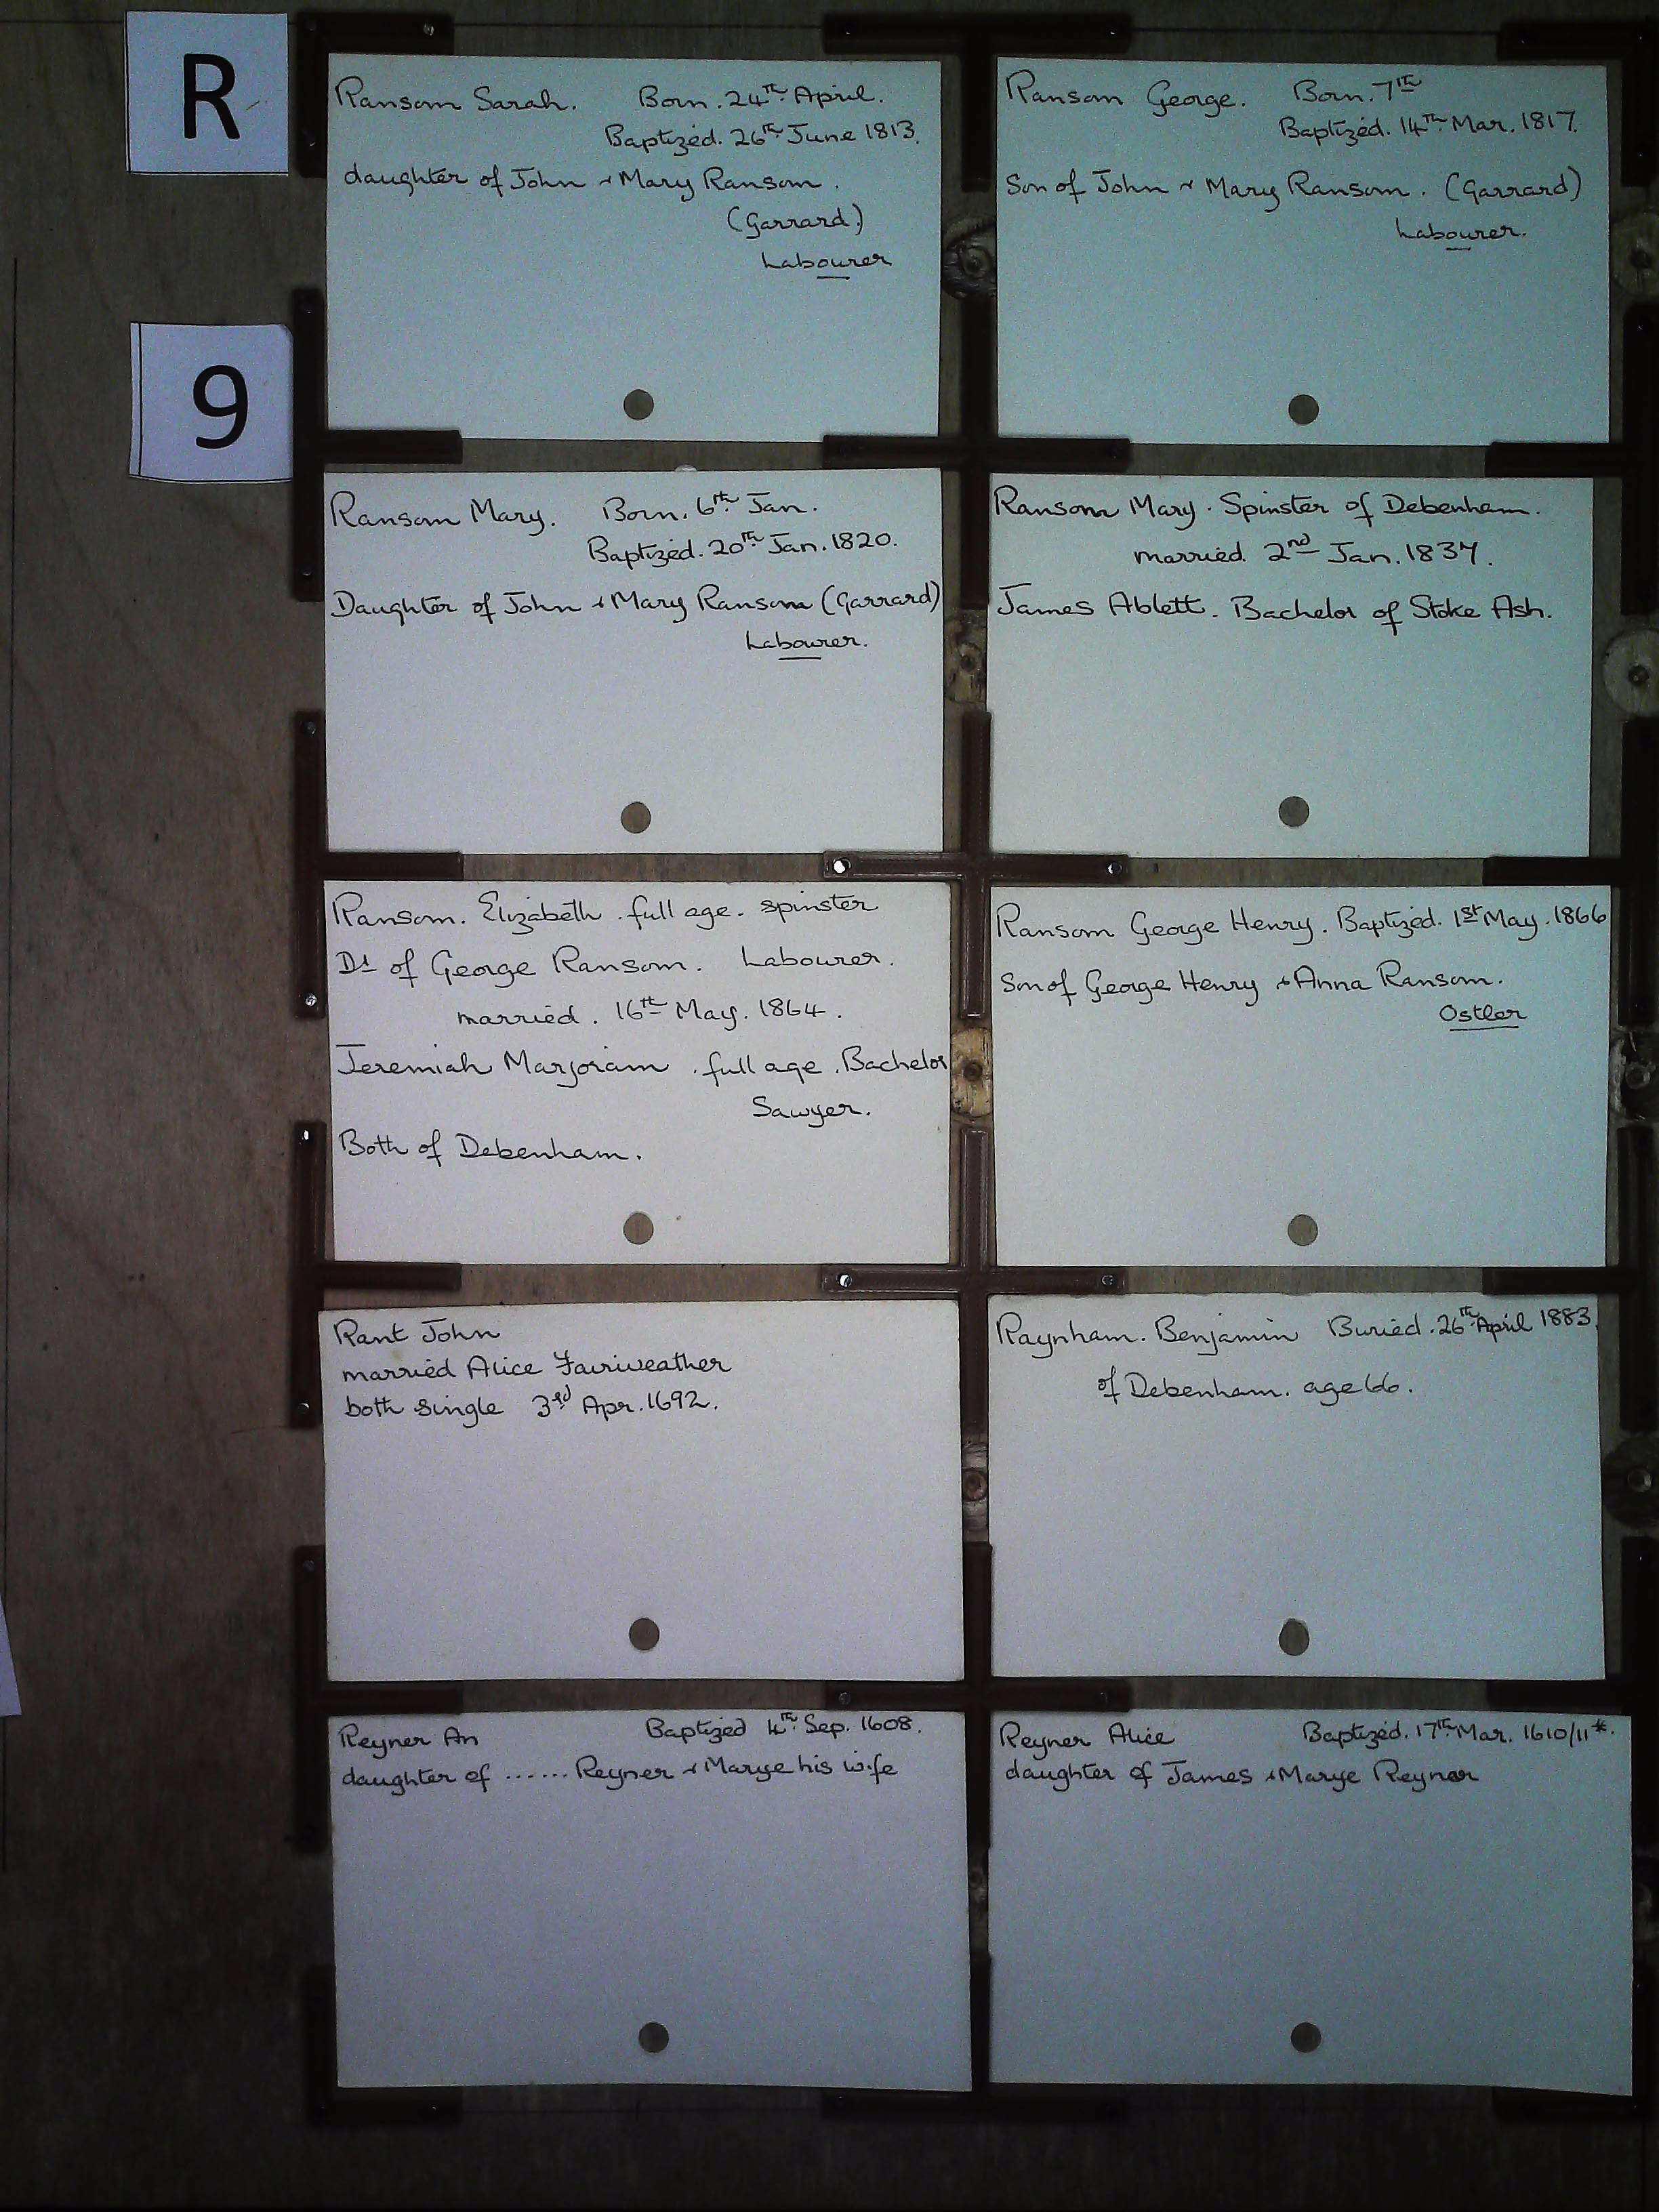 R
9
Ransom Sarah. Born. 24th April.
Baptized. 26th June 1813.
daughter of John & Mary Ransom.
(Garrard.)
Labourer
Ransom George. Born. 7th
Baptized. 14th Mar. 1817.
Son of John & Mary Ransom. (Garrard)
Labourer.
Ransom Mary. Born. 6th Jan.
Baptized. 20th Jan. 1820.
Daughter of John & Mary Ransom (Garrard)
Labourer.
Ransom Mary. Spinster of Debenham.
married 2nd Jan. 1837.
James Ablett. Bachelor of Stoke Ash.
Ransom. Elizabeth. full age. spinster
Dt of George Ransom. Labourer.
married. 16th May. 1864.
Jeremiah Marjoram. full age. Bachelor
Sawyer.
Both of Debenham.
Ransom George Henry. Baptized. 1st May. 1866
Son of George Henry & Anna Ransom.
Ostler
Rant John
married Alice Fairiweather
both single 3rd Apr. 1692.
Raynham. Benjamin Buried. 26th April 1883.
of Debenham. age 66.
Reyner An Baptized 4th Sep. 1608.
daughter of ...... Reyner & Marye his wife
Reyner Alice Baptized. 17th Mar. 1610/11*.
daughter of James & Marye Reyner